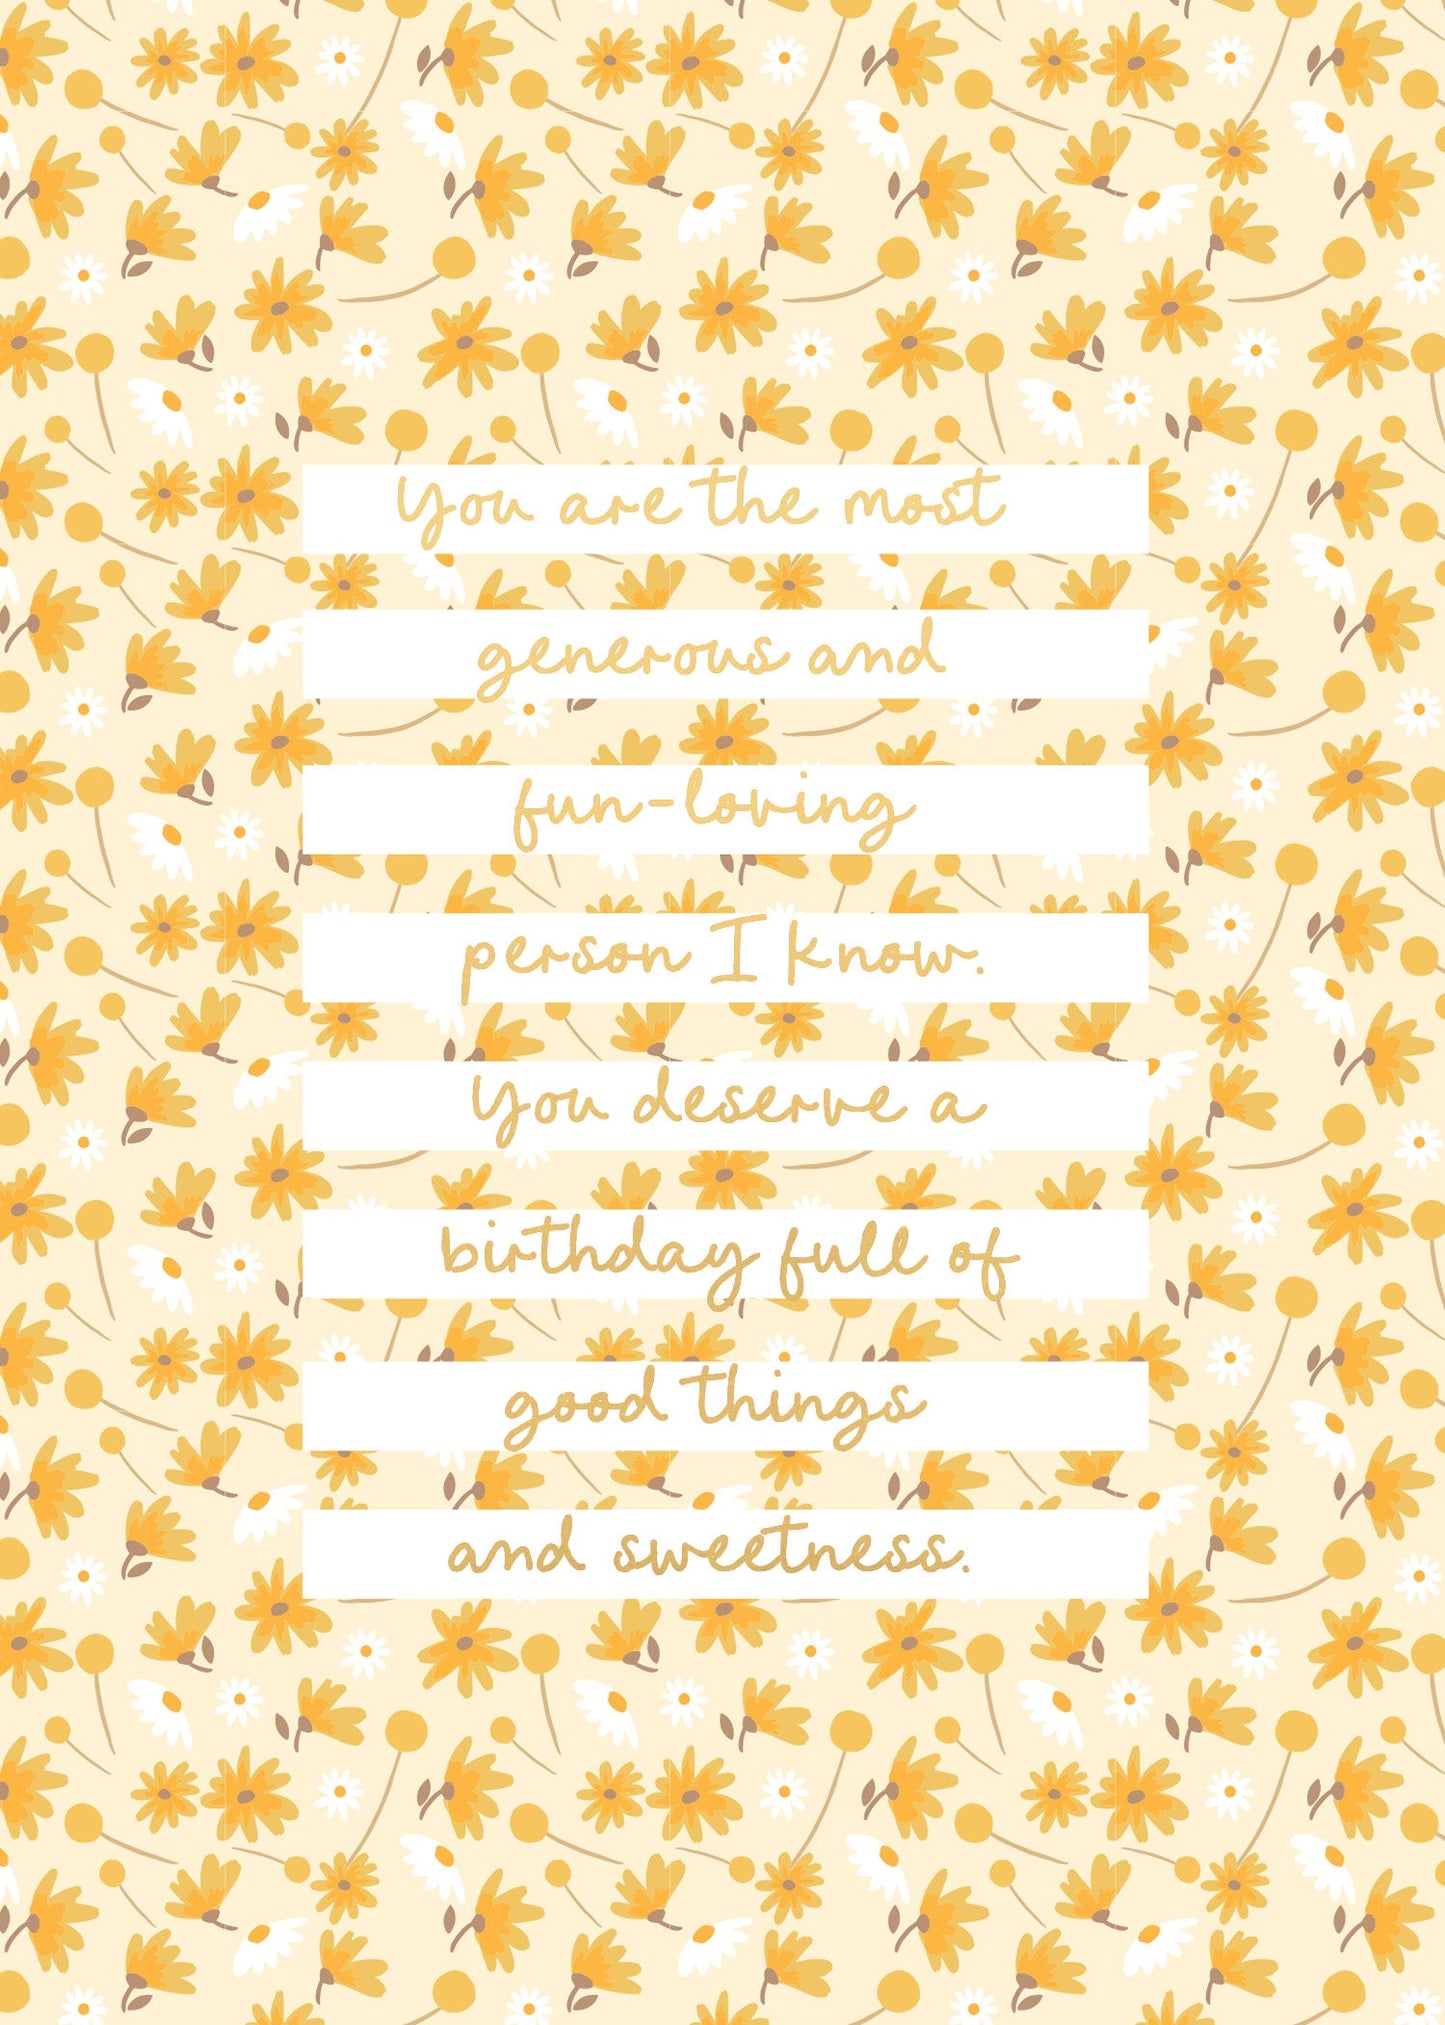 You are the most
generous and
fun-loving
person I know.
You deserve a
birthday full of
good things
and sweetness.